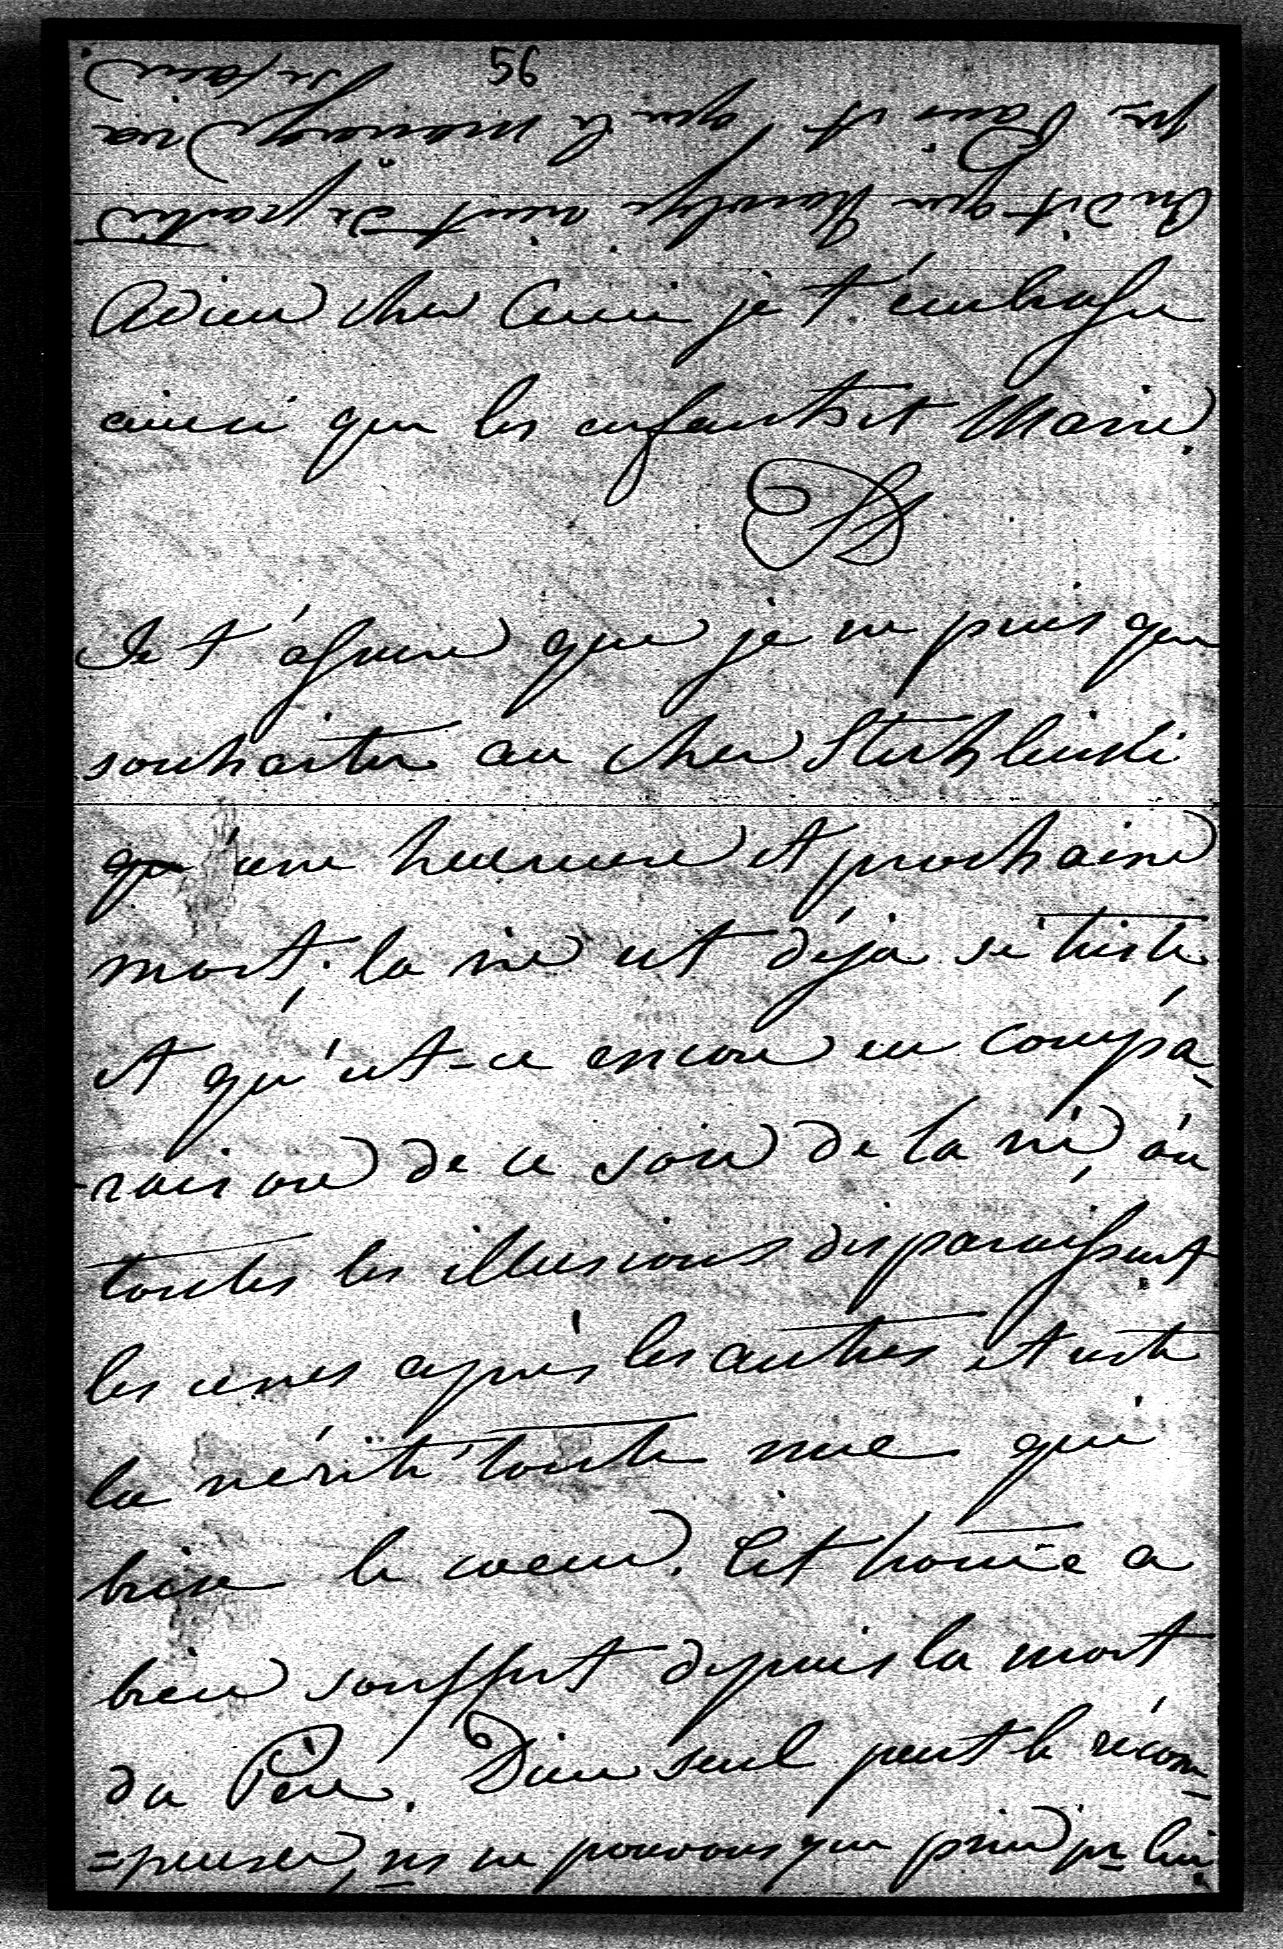 56
On dit que vient de partir
pr Paris et que le mariage va
se faire.
Adieu cher Ami je t'embrasse
ainsi que les enfants et Marie.
Je t'assure que je ne puis que
souhaiter au cher
qu'une heureuse et prochaine
mort; la vie est déja si triste
et qu'est-ce encore en compa-
-raison de ce soir de la vie, où
toutes les illusions disparaissent
les unes après les autres et reste
la vérité toute nue qui
brise le coeur. Cet homme a
bien souffert depuis la mort
du Père. Dieu seul peut le récom-
=penser, ns ne pouvons que prier pr lui.